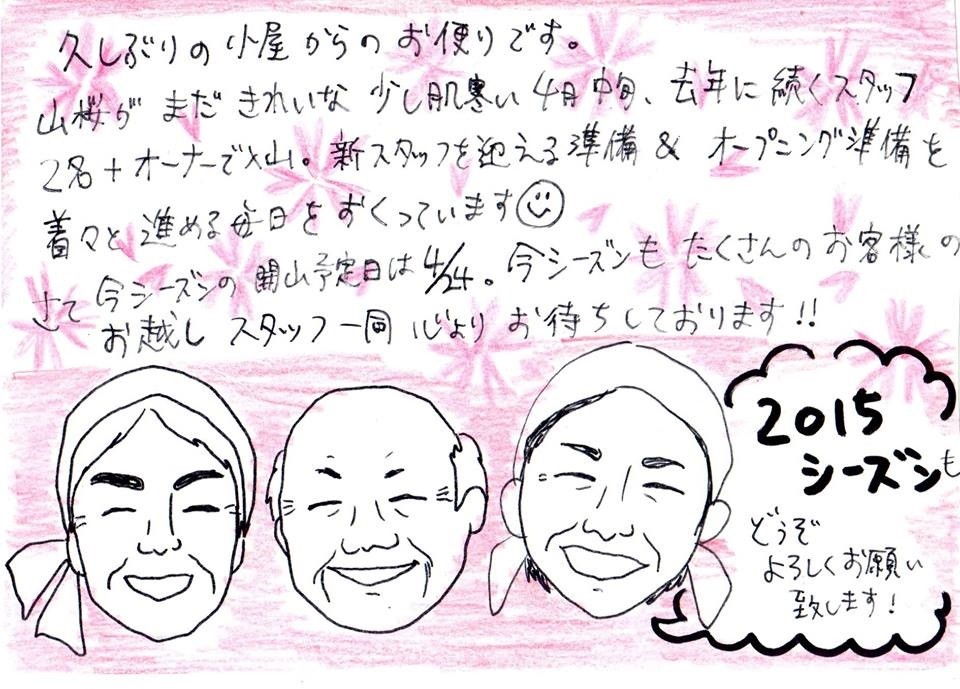 久しぶりの小屋からのお便りです。
山桜がまだきれいな少し肌寒い4月中旬、去年に続くスタッフ
2名+オーナーで入山。新スタッフを迎える準備&オープニング準備を
着々と進める毎日をおくっています
さて今シーズンの開山予定日は4/24。今シーズンもたくさんのお客様の
お越しスタッフ一同心よりお待ちしております!!
2015
シーズンも
どうぞ
よろしくお願い
致します!